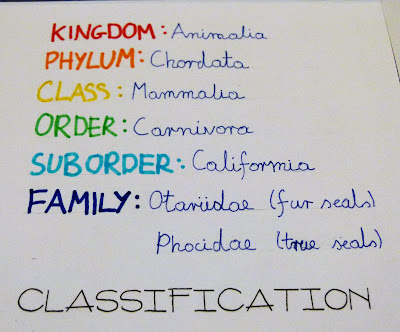 KINGDOM: Animalia
PHYLUM: Chordata
CLASS: Mammalia
ORDER: Carnivora
SUBORDER: Califormia
FAMILY: Otariidae (fur seals)
Phocidae (true seals)
CLASSIFICATION